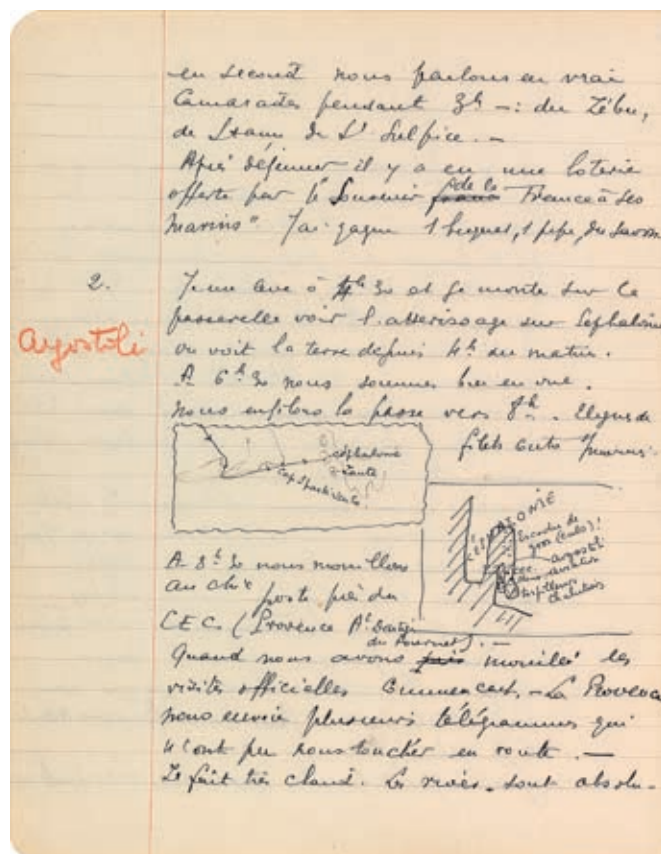 en second nous parlons en vrai
Camarades pendant 3h –: du Zébu,
de Stanis de St Sulpice. –
Après déjeuner il y a eu une loterie
offerte par le Souvenir de la France à ses
Marins" J'ai gagné 1 briquet, 1 pipe, du savon
2.
Argostoli
Je me lève à 4h 30 et je monte sur la
passerelle voir l'atterissage sur Céphalonie
on voit la terre depuis 4h du matin.
A 6h 30 nous sommes bien en vue.
Nous enfilons la passe vers 8h.
filets
Céphalonie
Zante
Cap Spartivento
CÉPHALONIE
Escadre de
gros (culs)!
Argostoli
Torpilleurs
Chalutiers
A 8h 30 nous mouillons
au chic poste près du
C E C. (Provence At Dartige
du Fournet). –
Quand nous avons mouillé les
visites officielles commencent. – La Provence
nous envoie plusieurs télégrammes qui
n'ont pu nous toucher en route. –
Il fait très chaud. Les rives sont absolu-